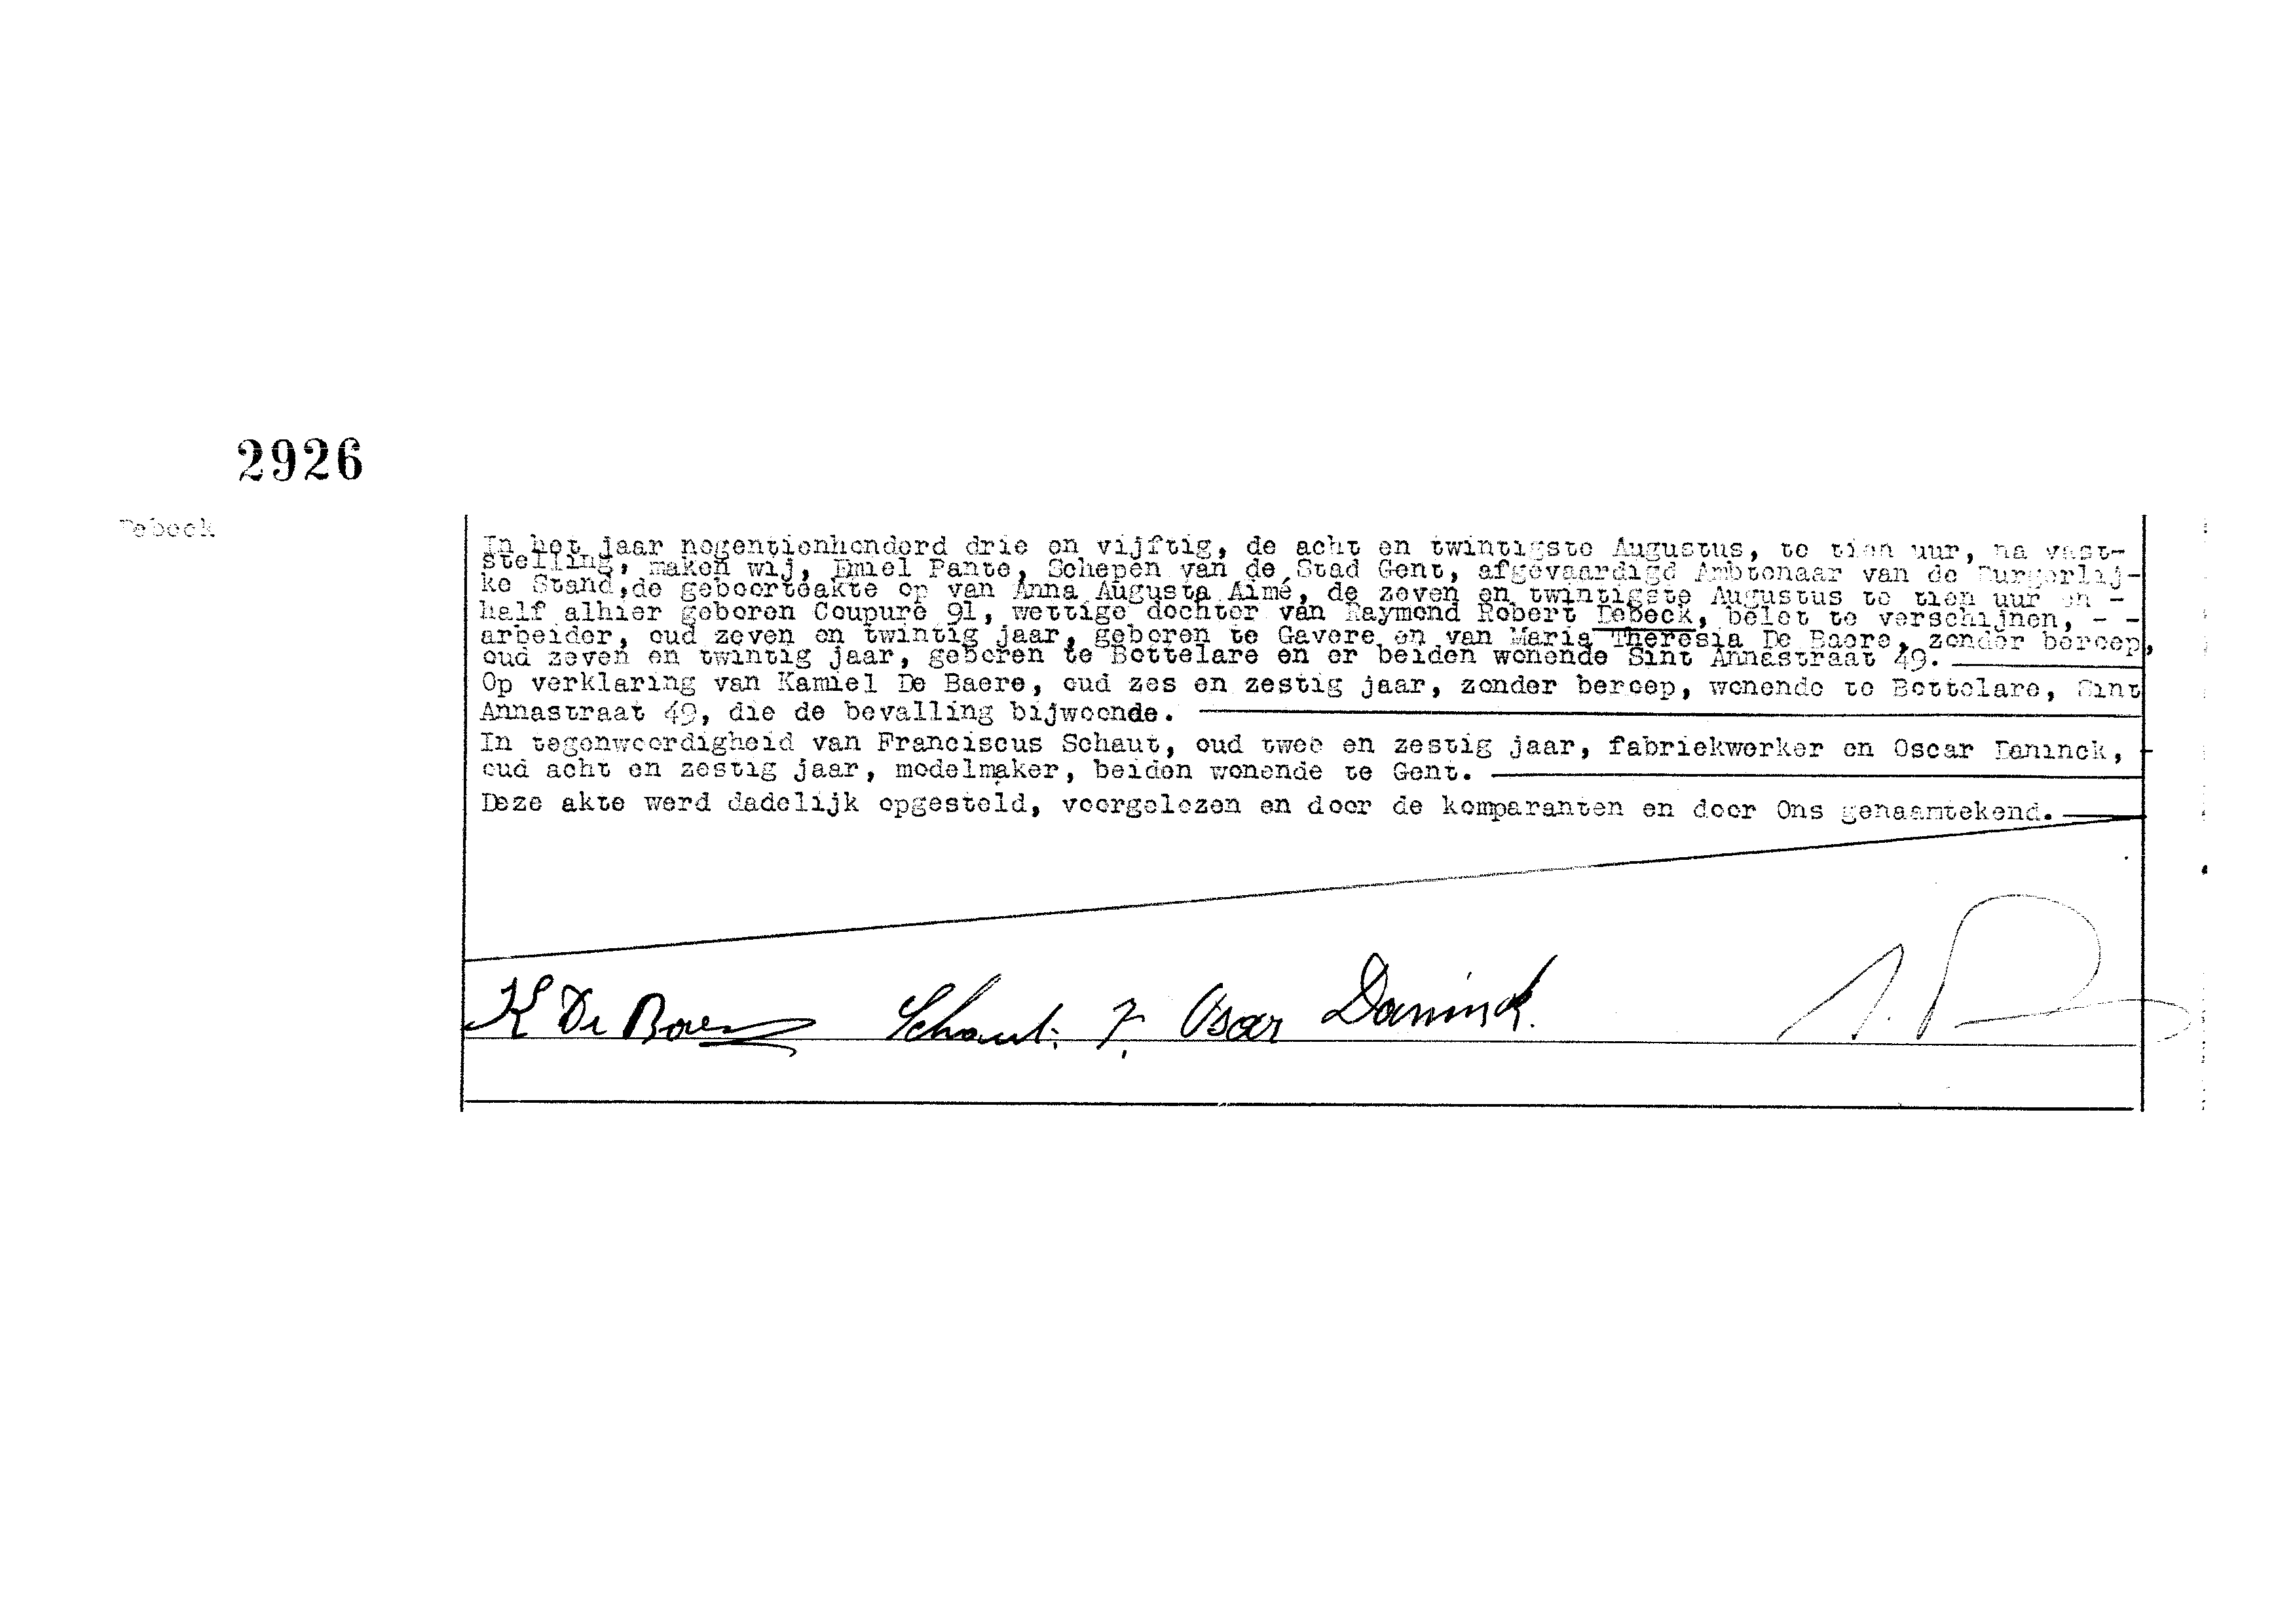 2926
Debeck
In het jaar negentienhonderd drie en vijftig, de acht en twintigste Augustus, te tien uur, na vast-
stelling, maken wij, Emiel Pante, Schepen van de Stad Gent, afgevaardigd Ambtenaar van de Burgerlij-
ke Stand,de geboorteakte op van Anna Augusta Aimé, de zeven en twintigste Augustus te tien uur en -
half alhier geboren Coupure 91, wettige dochter van Raymond Robert Debeck, belet te verschijnen, - -
arbeider, oud zeven en twintig jaar, geboren te Gavere en van Maria Theresia De Baere, zonder beroep,
oud zeven en twintig jaar, geboren te Bottelare en er beiden wonende Sint Annastraat 49.
Op verklaring van Kamiel De Baere, oud zes en zestig jaar, zonder beroep, wonende te Bottelare, Sint
Annastraat 49, die de bevalling bijwoonde.
In tegenwoordigheid van Franciscus Schaut, oud twee en zestig jaar, fabriekwerker en Oscar Daninck, -
oud acht en zestig jaar, modelmaker, beiden wonende te Gent.
Deze akte werd dadelijk opgesteld, voorgelezen en door de komparanten en door Ons genaamtekend.
K De Baere Schaut. F. Oscar Daninck.